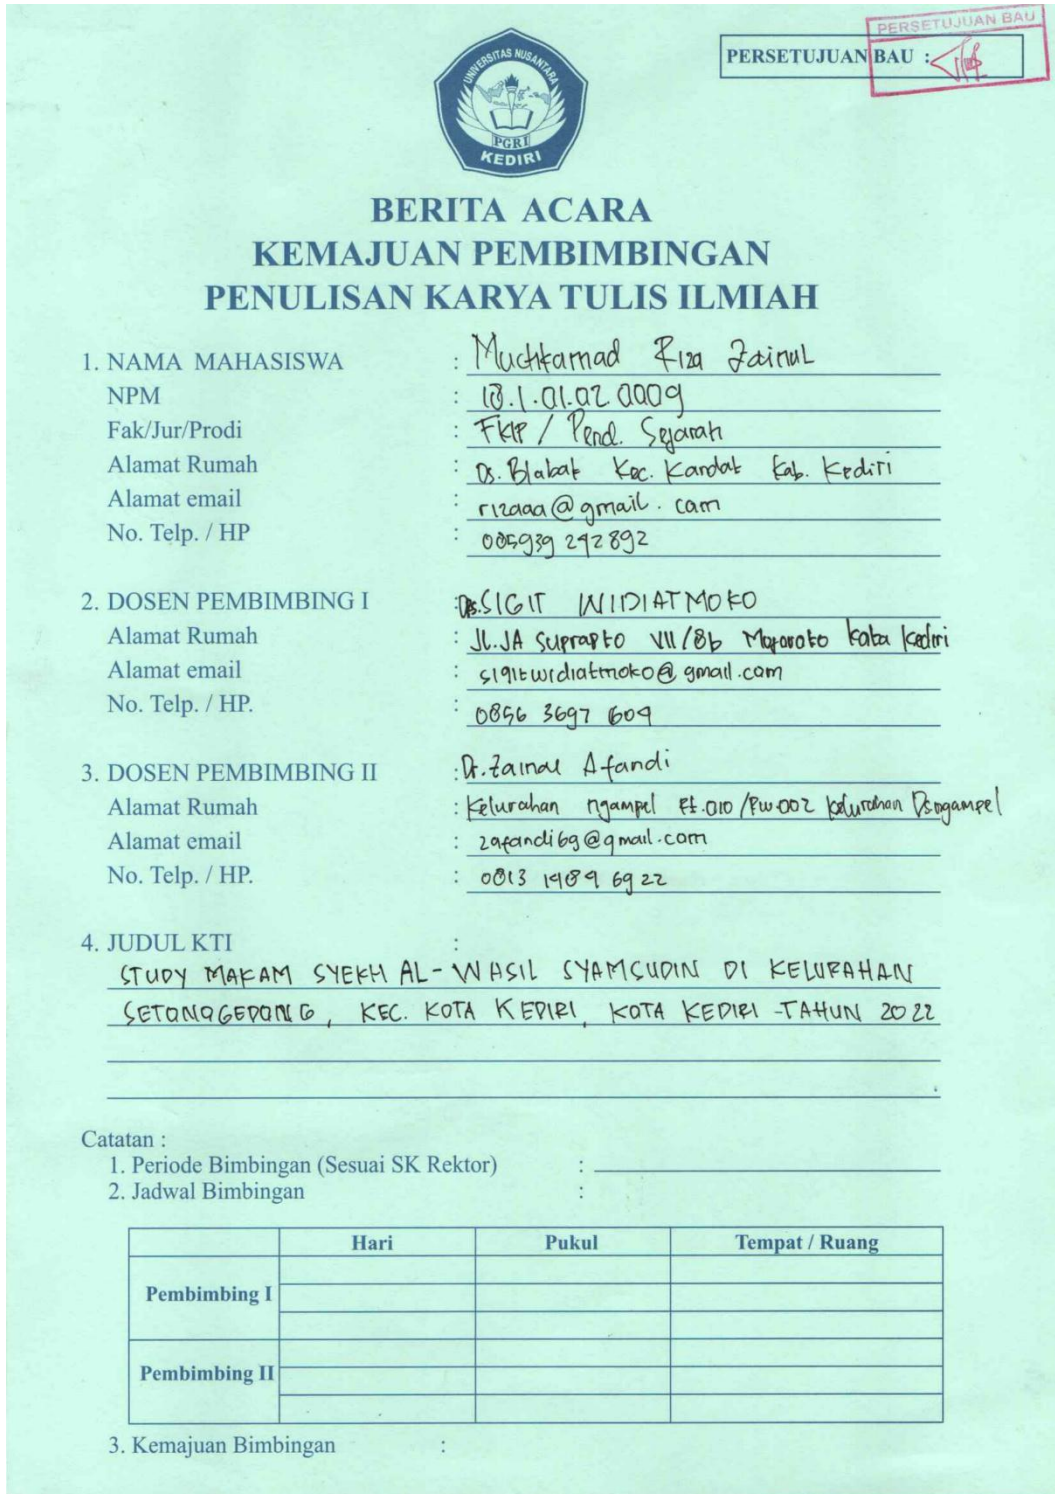 PERSETUJUAN BAU
PERSETUJUAN BAU :
UNIVERSITAS NUSANTARA
PGRI
KEDIRI
BERITA ACARA
KEMAJUAN PEMBIMBINGAN
PENULISAN KARYA TULIS ILMIAH
1. NAMA MAHASISWA : Muchkamad Riza Zainul
NPM : 18.1.01.02.0009
Fak/Jur/Prodi : FKIP / Pend. Sejarah
Alamat Rumah : Ds. Blabak Kec. Kandat Kab. Kediri
Alamat email : rizaaa@gmail.com
No. Telp. / HP : 085939 292892
2. DOSEN PEMBIMBING I : Drs. SIGIT WIDIATMOKO
Alamat Rumah : JL. JA Suprapto VII/8b Mojoroto Kota Kediri
Alamat email : sigitwidiatmoko@gmail.com
No. Telp. / HP. : 0856 3697 609
3. DOSEN PEMBIMBING II : Dr. Zainal Afandi
Alamat Rumah : Kelurahan ngampel Rt.010/Rw.002 kelurahan Ds ngampel
Alamat email : zafandi69@gmail.com
No. Telp. / HP. : 0813 1989 6922
4. JUDUL KTI :
STUDY MAKAM SYEKH AL-WASIL SYAMSUDIN DI KELURAHAN
SETONOGEDONG, KEC. KOTA KEDIRI, KOTA KEDIRI TAHUN 2022
Catatan :
1. Periode Bimbingan (Sesuai SK Rektor) :
2. Jadwal Bimbingan :
Hari Pukul Tempat / Ruang
Pembimbing I
Pembimbing II
3. Kemajuan Bimbingan :